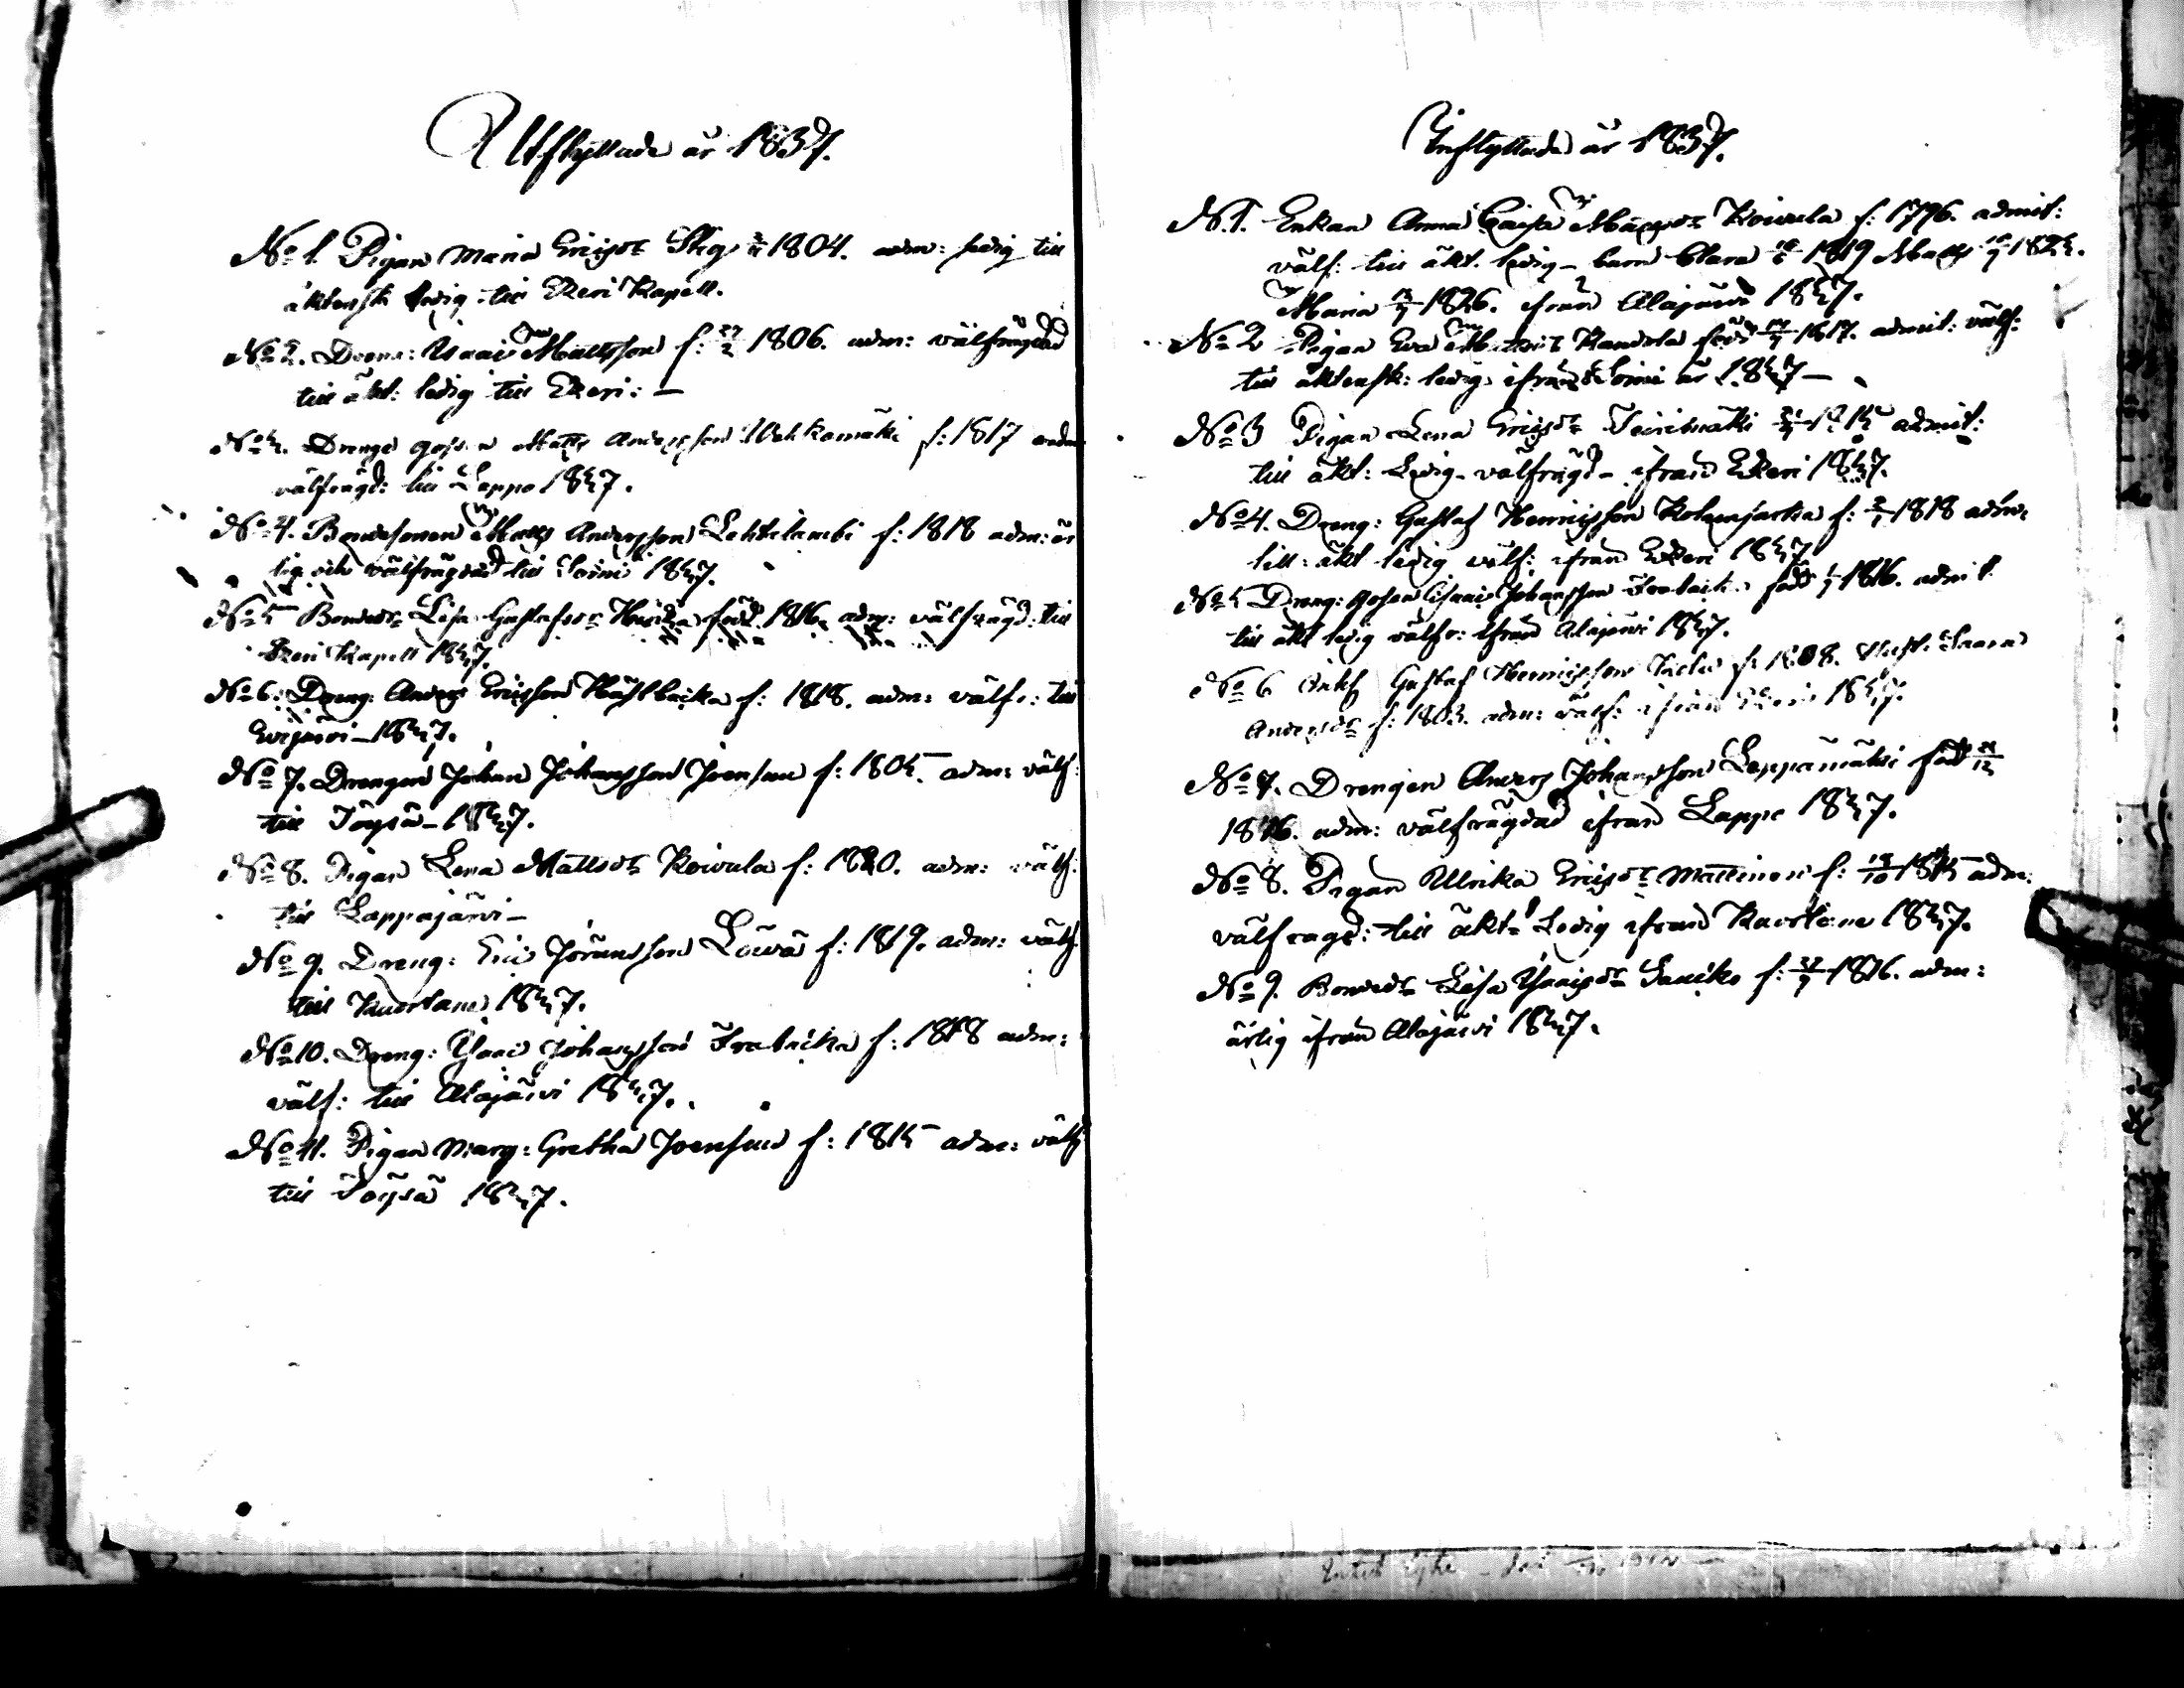 Utflyttade år 1837.
No 1. Pigan Maria Ericsdr Skog 1804. adm: ledig till
äktensk ledig till Etzeri Kapell.
No 2. Dreng: Isaac Mattsson f: 27/2 1806. adm: välfrägdad
till äkt: ledig till Etzeri: —
No 3. Drenge gossen Matts Andersson f: 1817 adm
välfrägd: till Lappo 1837.
No 4. Bondesonen Matts Andersson Lehtilambi f: 1818 adm: är
lig och välfrägdad till Soini 1837.
No 5 Bondedr Lisa Gustafsdr född 1816. adm: välfrägd: till
Etzeri Kapell 1837.
No 6. Dreng: Anders Ericsson f: 1818. adm: välfr: till
Evijärvi — 1837.
No 7. Drengen Johan Johansson Joensuu f: 1805. adm: välf:
till Töysä — 1837.
No 8. Pigan Lena Mattsdr Koivula f: 1820. adm: välf:
till Lappajärvi —
No 9. Dreng: Eric Jöransson f: 1819. adm: välf:
till Kuortane 1837.
No 10. Dreng: Isaac Johansson f: 1818 adm:
välf: till Alajärvi 1837.
No 11. Pigan Marg: Gretha Joensuu f: 1815 adm: välf
till Töysä 1837.
Inflyttade år 1837.
N. 1. Enkan Anna Caisa Mattsdr Koivula f: 1796. admit:
välf: till äkt. ledig — barn Clara 1819 Matts 1823.
Maria 1826. ifrån Alajärvi 1837.
No 2 Pigan Eva Mattsdr född 1817. admit: välf:
till äktensk: ledig ifrån Soini år 1837 —
No 3 Pigan Lena Ericsdr admit:
till äkt: Ledig — välfrägd — ifrån Etzeri 1837.
No 4. Dreng: Gustaf Henricsson f: 1818 adm:
till: äkt ledig välf: ifrån Etzeri 1837
No 5 Dreng: gossen Isaac Johansson född 1816. admit
till äkt ledig välfr: ifrån Alajärvi 1837.
No 6 Gustaf Henricsson f: 1808. Hust: Saara
Andersdr f: 1803. adm: välf: ifrån Etzeri 1837.
No 7. Drengen Anders Johansson Lappamäki född
1816. adm: välfrägdad ifrån Lappo 1837.
No 8. Pigan Ulrika Ericsdr Mattinen f: 18/10 1815 adm:
välfrägd: till äkt: Ledig ifrån Kuortane 1837.
No 9. Bondedr Lisa Isaacsdr f: 1816. adm:
ärlig ifrån Alajärvi 1837.